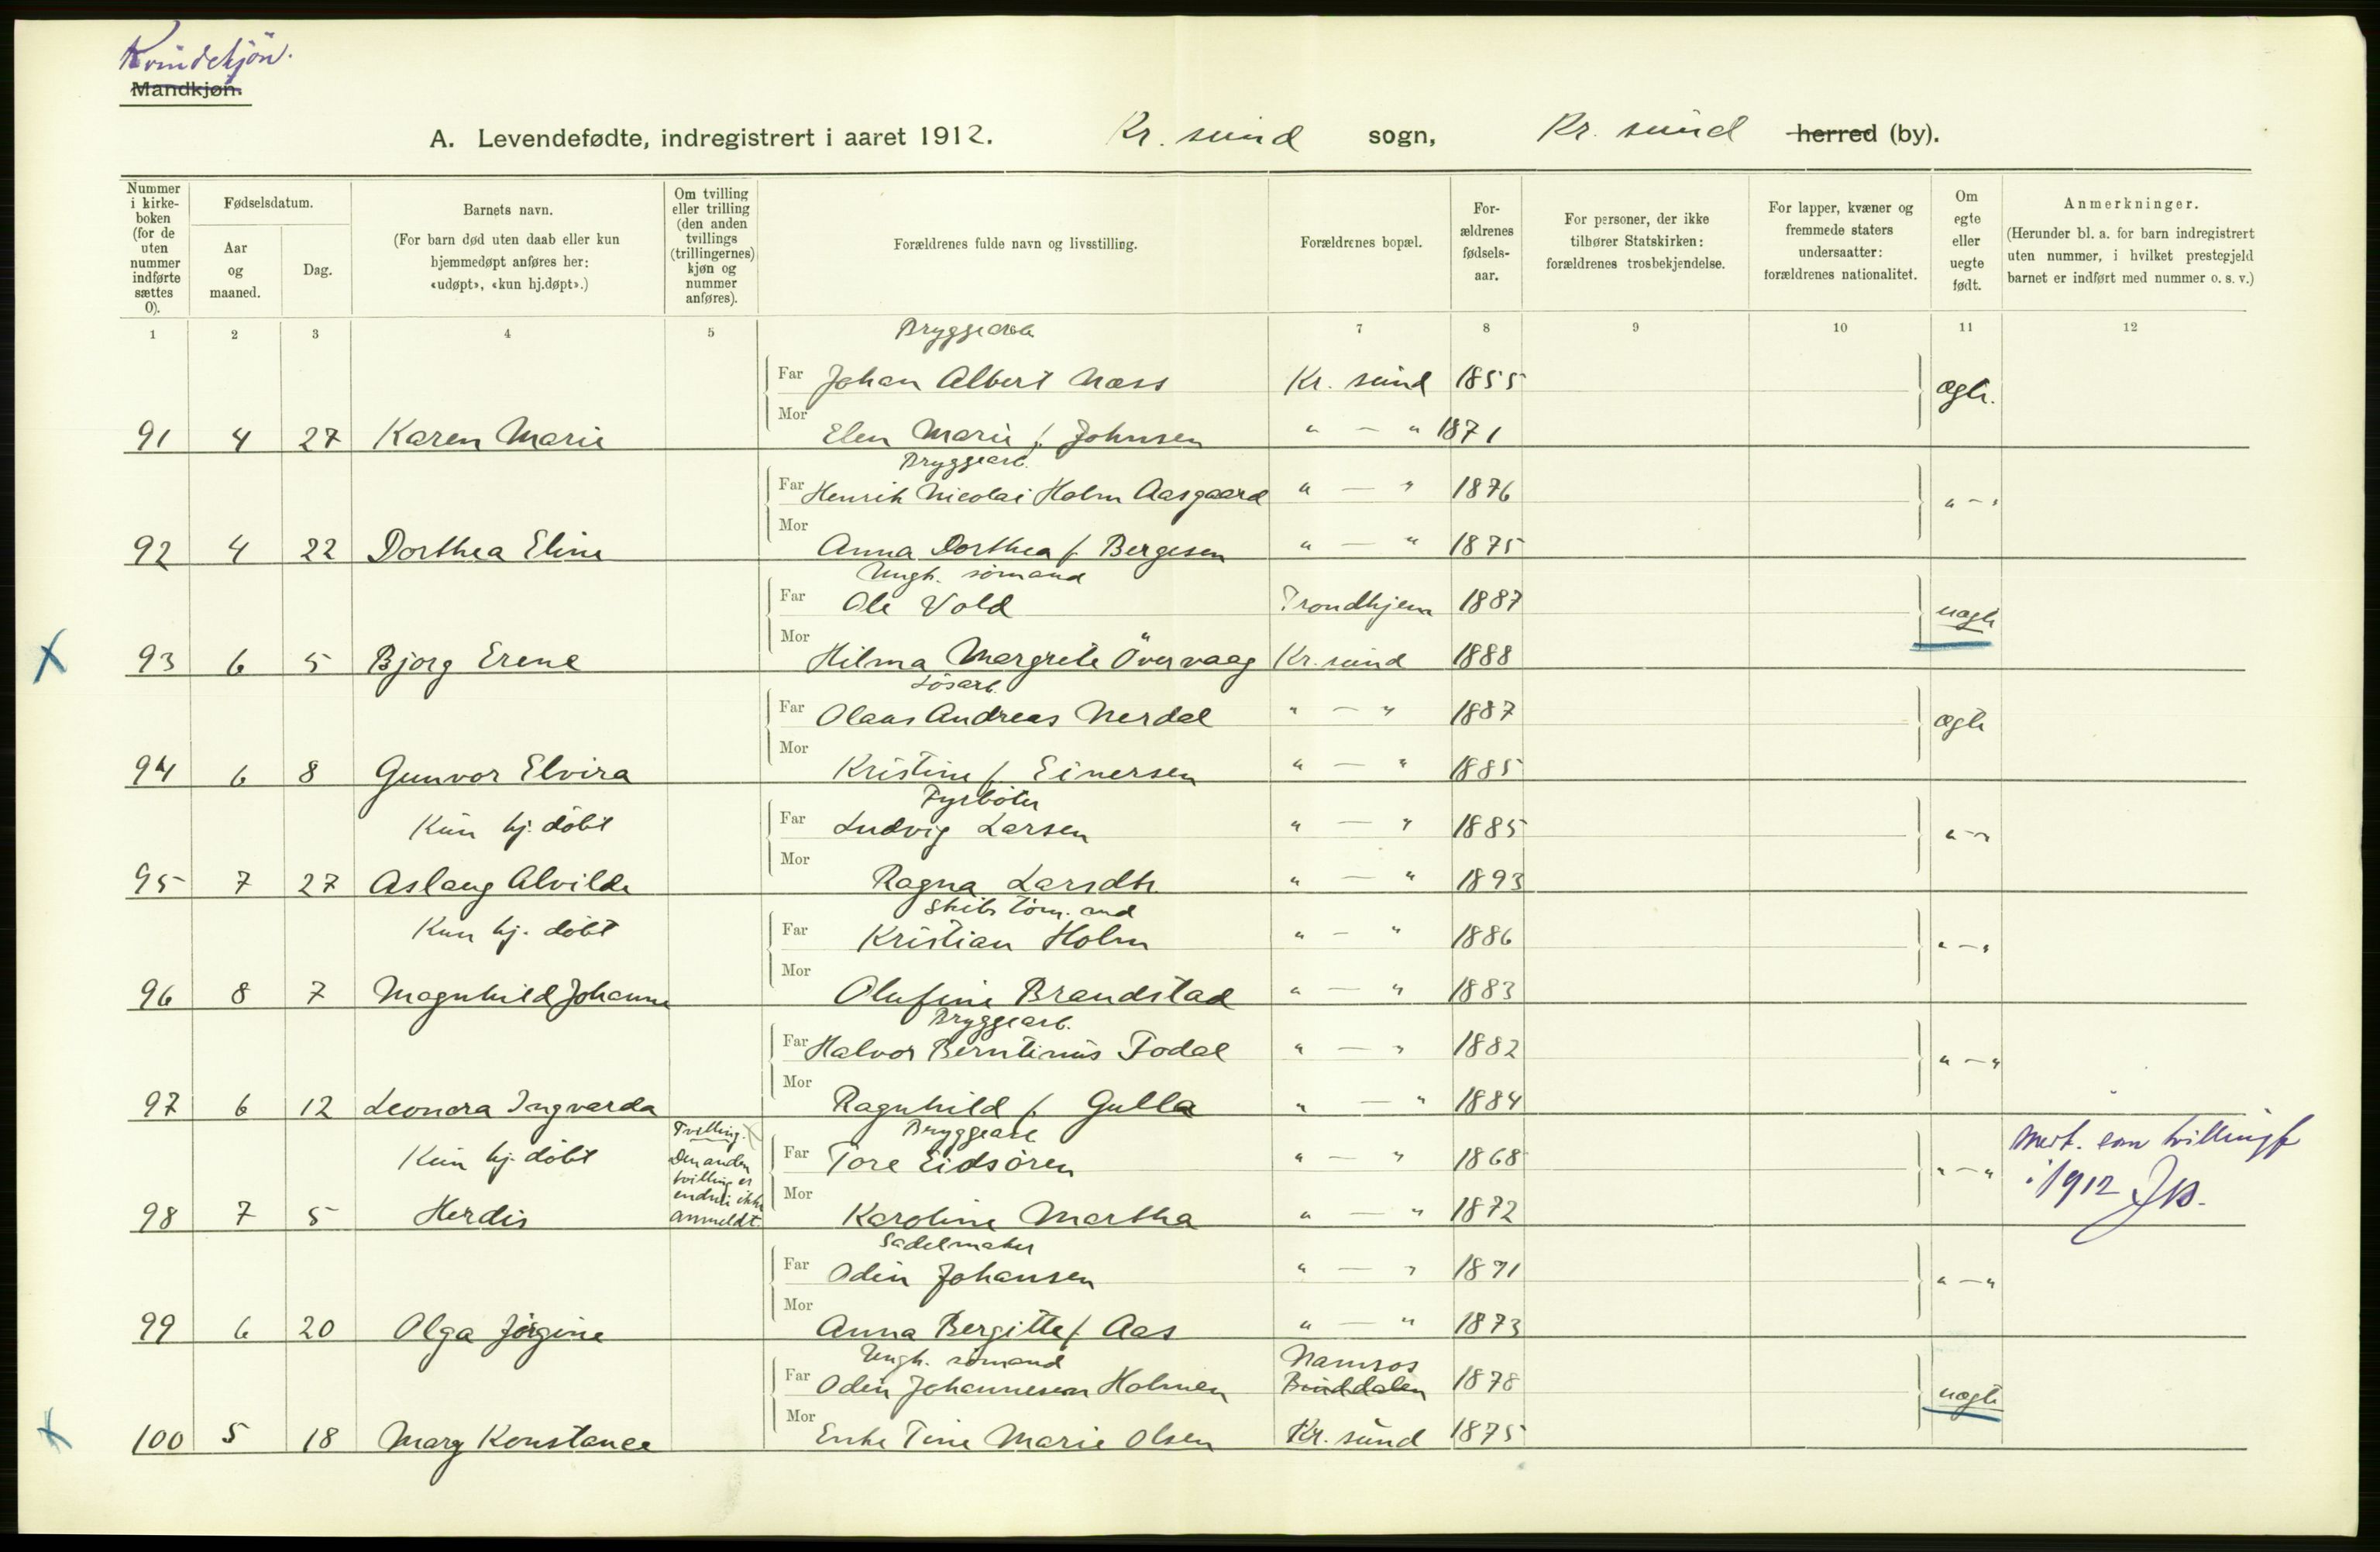 Kvindekjön.
Mandkjøn.
A. Levendefødte, indregistrert i aaret 1912. Kr. sund sogn, Kr. sund herred (by).
Nummer i kirke-boken (for de uten nummer indførte sættes 0).
Fødselsdatum.
Aar og maaned.
Dag.
Barnets navn.
(For barn død uten daab eller kun hjemmedøpt anføres her: «udøpt», «kun hj.døpt».)
Om tvilling eller trilling (den anden tvillings (trillingernes) kjøn og nummer anføres).
Forældrenes fulde navn og livsstilling.
Forældrenes bopæl.
For-ældrenes fødsels-aar.
For personer, der ikke tilhører Statskirken: forældrenes trosbekjendelse.
For lapper, kvæner og fremmede staters undersaatter: forældrenes nationalitet.
Om egte eller uegte født.
Anmerkninger.
(Herunder bl. a. for barn indregistrert uten nummer, i hvilket prestegjeld barnet er indført med nummer o. s. v.)
1 2 3 4 5 7 8 9 10 11 12
Bryggearb
Far Johan Albert Næss Kr. sund 1855 ægte.
91 4 27 Karen Marie Mor Elen Marie f. Johnsen " — " 1871
Bryggearb.
Far Henrik Nicolai Holm Aasgaard " — " 1876 " — "
92 4 22 Dorthea Eline Mor Anna Dorthea f. Bergesen " — " 1875
Ungk. sömand
Far Ole Vold Trondhjem 1887 uægte
X 93 6 5 Bjorg Erene Mor Hilma Margrete Övervaag Kr. sund 1888
Lösarb.
Far Olaus Andreas Nerdal " — " 1887 ægte
94 6 8 Gunvor Elvira Mor Kristine f. Einersen " — " 1885
Fyrböter
Kun hj. döbt Far Ludvig Larsen " — " 1885 " — "
95 7 27 Aslaug Alvilde Mor Ragna Larsdtr " — " 1893
Skibstöm. and
Kun hj. döbt Far Kristian Holm " — " 1886 " — "
96 8 7 Magnhild Johanne Mor Olufine Brandstad " — " 1883
Bryggearb.
Far Halvor Berntinus Todal " — " 1882 " — "
97 6 12 Leonora Ingvarda Mor Ragnhild f. Gulla " — " 1884
Bryggearb
Kun hj. döbt Tvilling. Den anden tvilling er endnu ikke anmeldt Far Tore Eidsören " — " 1868 " — " Merk. som tvillingf i 1912
98 7 5 Herdis Mor Karoline Martha " — " 1872
Sadelmaker
Far Odin Johansen " — " 1871 " — "
99 6 20 Olga Jörgine Mor Anna Bergitte f. Aas " — " 1873
Ungk. sömand Namsos
Far Odin Johannesen Holmen Binddalen 1878 uægte
X 100 5 18 Marg Konstance Mor Enke Tine Marie Olsen Kr. sund 1875